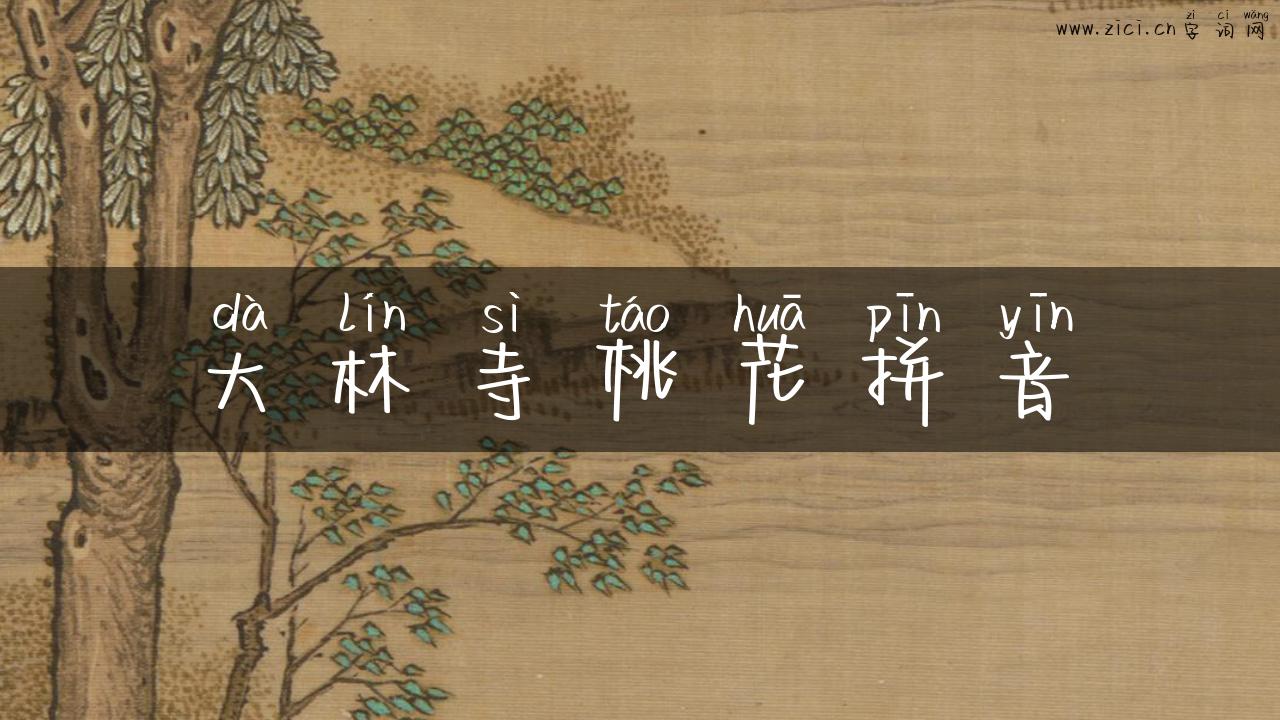 zì cí wǎng
www.zici.cn 字词网
dà lín sì táo huā pīn yīn
大林寺桃花拼音